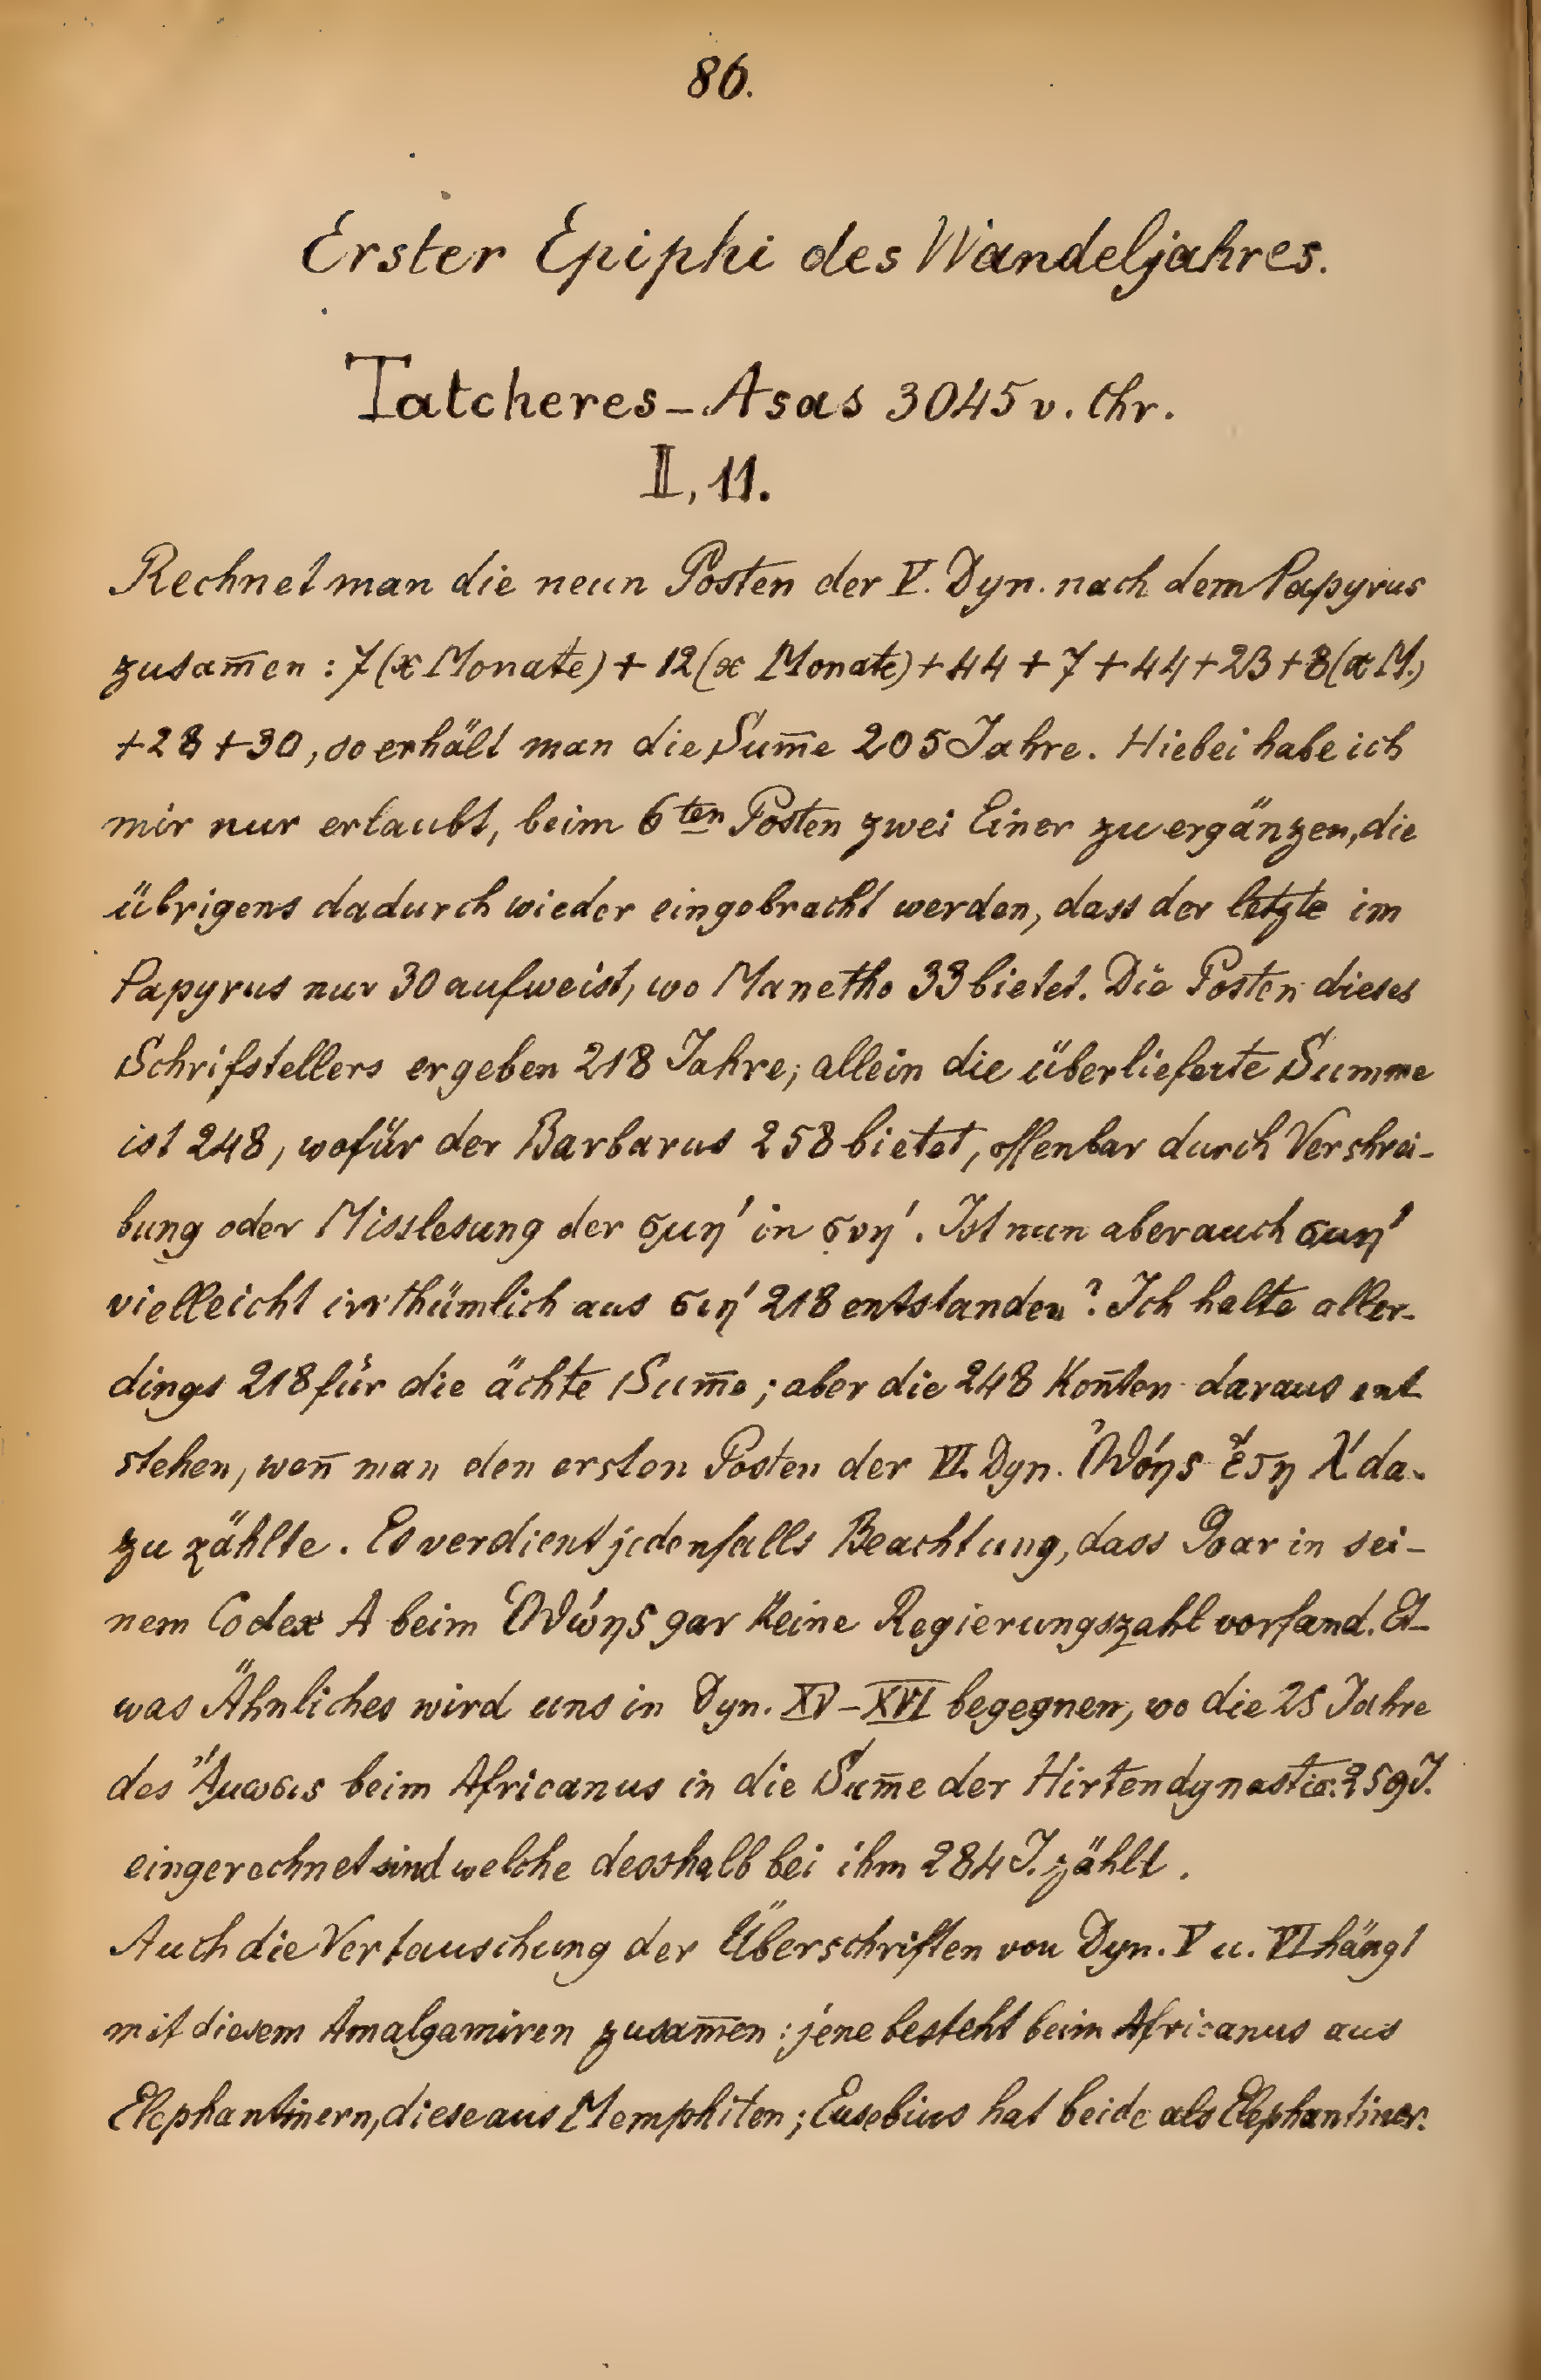 86.
Erster Epiphi des Wandeljahres.
Tatcheres-Asas 3045 v. Chr.
II, 11.
Rechnet man die neun Posten der V. Dyn. nach dem Papyrus
zusam̅en : 7 (x Monate) + 12 (x Monate) + 44 + 7 + 44 + 23 + 8 (x M.)
+ 28 + 30, so erhält man die Sum̅e 205 Jahre. Hiebei habe ich
mir nur erlaubt, beim 6ten Posten zwei Einer zu ergänzen, die
übrigens dadurch wieder eingebracht werden, dass der letzte im
Papyrus nur 30 aufweist, wo Manetho 33 bietet. Die Posten dieses
Schrifstellers ergeben 218 Jahre; allein die überlieferte Summe
ist 248, wofür der Barbarus 258 bietet, offenbar durch Vershrei-
bung oder Misslesung der σμη' in σνη'. Ist nun aber auch σμη'
vielleicht irrthümlich aus σιη' 218 entstanden? Ich halte aller-
dings 218 für die ächte Sum̅e; aber die 248 kon̅ten daraus ent
stehen, wen̅ man den ersten Posten der VI. Dyn. Ὀθόης ἔτη λ' da-
zu zählte. Es verdient jedenfalls Beachtung, dass Goar in sei-
nem Codex A beim Ὀθώης gar keine Regierungszahl vorfand. Et-
was Ähnliches wird uns in Dyn. XV-XVI begegnen, wo die 25 Jahre
des Ἄμωσις beim Africanus in die Sum̅e der Hirtendynastie: 259 J.
eingerechnet sind welche desshalb bei ihm 284 J. zählt.
Auch die Vertauschung der Überschriften von Dyn. V u. VI hängt
mit diesem Amalgamiren zusam̅en : jene besteht beim Africanus aus
Elephantinern, diese aus Memphiten; Eusebius hat beide als Elephantiner.